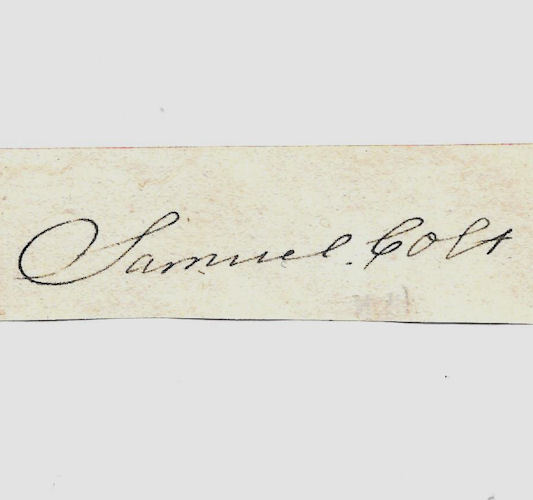 Samuel. Colt